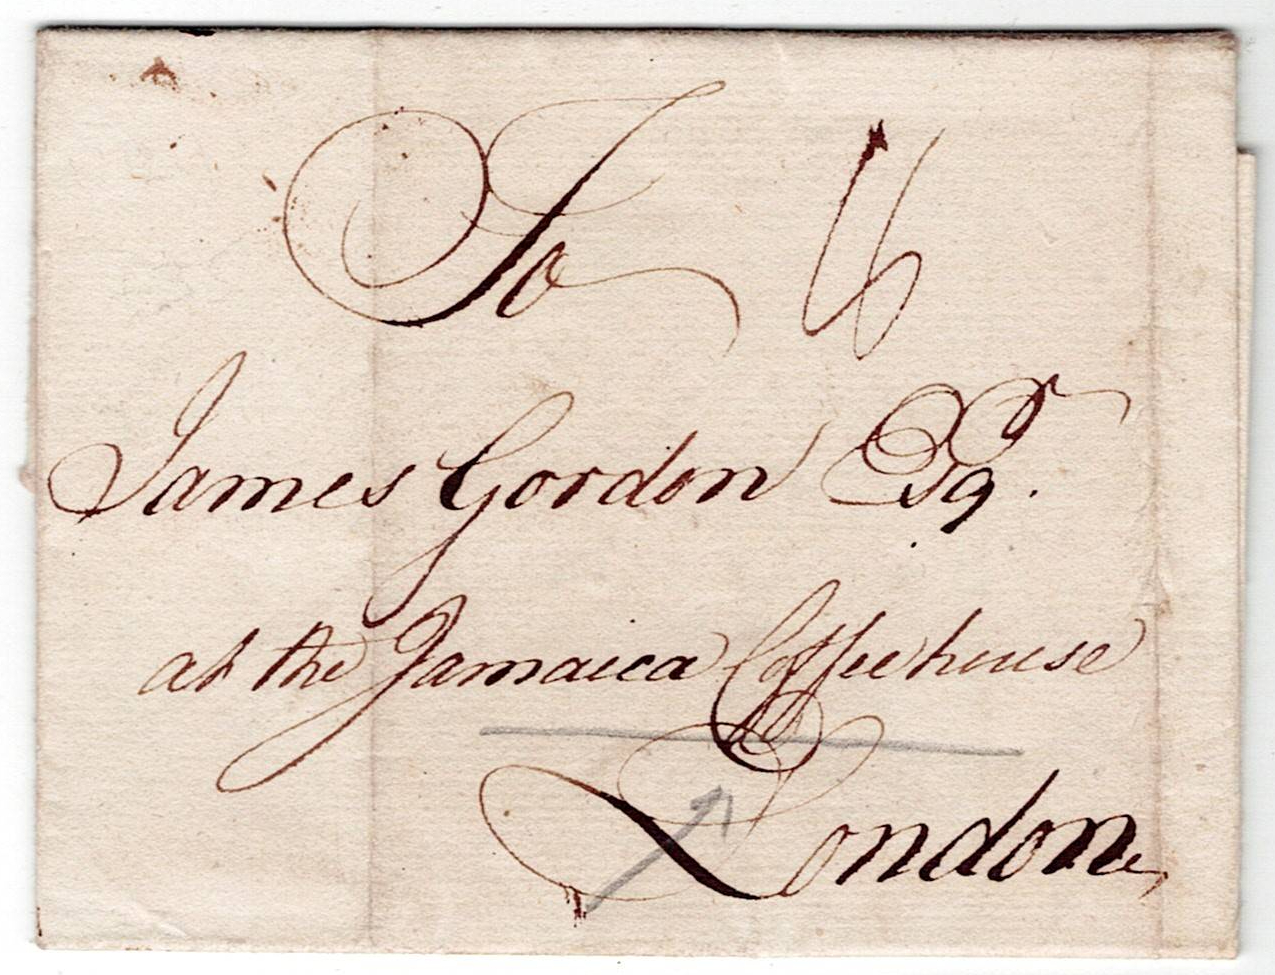 To 6
James Gordon Esqr.
at the Jamaica Coffeehouse
London